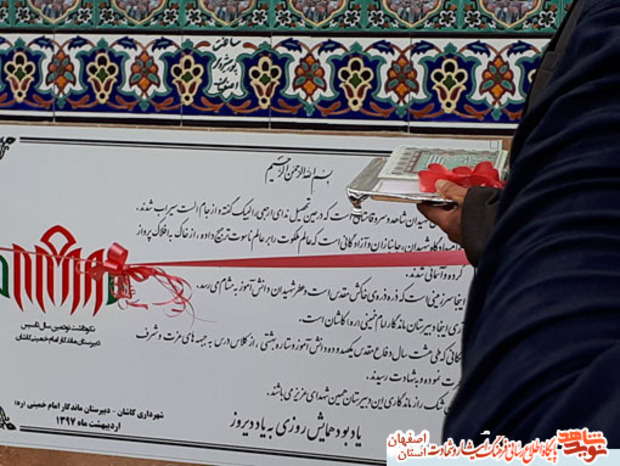 ساختن
بسم الله الرحمن الرحیم
شهیدان شاهد و سرو قامتانی است که در حین تحصیل ندای ارجعی را لبیک گفته و از جام الست سیراب شدند.
شهیدان، جانبازان و آزادگانی است که عالم ملکوت را بر عالم ناسوت ترجیح داده، از خاک به افلاک پرواز
کرده و آسمانی شدند.
اینجا سرزمینی است که ذره ذره ی خاکش مقدس است و عطر شهیدان دانش آموز به مشام می رسد.
آری اینجا دبیرستان ماندگار امام خمینی (ره) کاشان است.
که طی هشت سال دفاع مقدس یکصد و ده دانش آموز و ستاره بهشتی، از کلاس درس به جبهه های عزت و شرف
نموده و به شهادت رسیدند.
شک راز ماندگاری این دبیرستان همین شهدای عزیز می باشند.
یادبود همایش روزی به یاد دیروز
نکوداشت نودمین سال تاسیس
دبیرستان ماندگار امام خمینی کاشان
شهرداری کاشان - دبیرستان ماندگار امام خمینی (ره)
اردیبهشت ماه ۱۳۹۷
نوید شاهد
پایگاه اطلاع رسانی فرهنگ ایثار و شهادت
اصفهان
استان